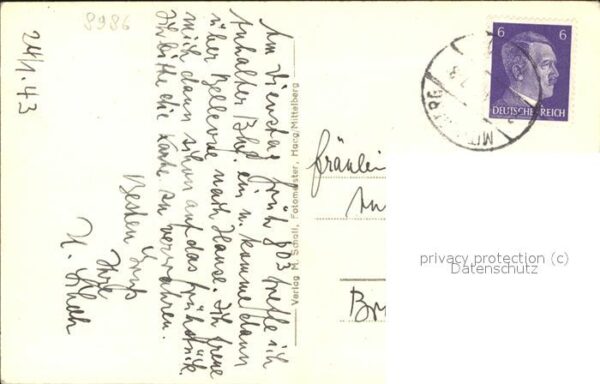 8986
24/1.43
Am Dienstag früh 803 treffe ich
Anhalter Bhf. ein u. komme dann
über Bellevue nach Hause. Ich freue
mich dann schon auf das Frühstück.
Ich bitte die Karte zu verwahren.
Besten Gruß
Ihr
H.
Verlag M. Schöll, Fotomeister, Haag, Mittelberg
6 6
DEUTSCHES REICH
Fräulein
privacy protection (c)
Datenschutz